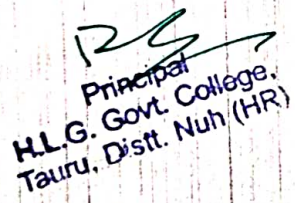 Principal
H.L.G. Govt. College,
Tauru, Distt. Nuh (HR)